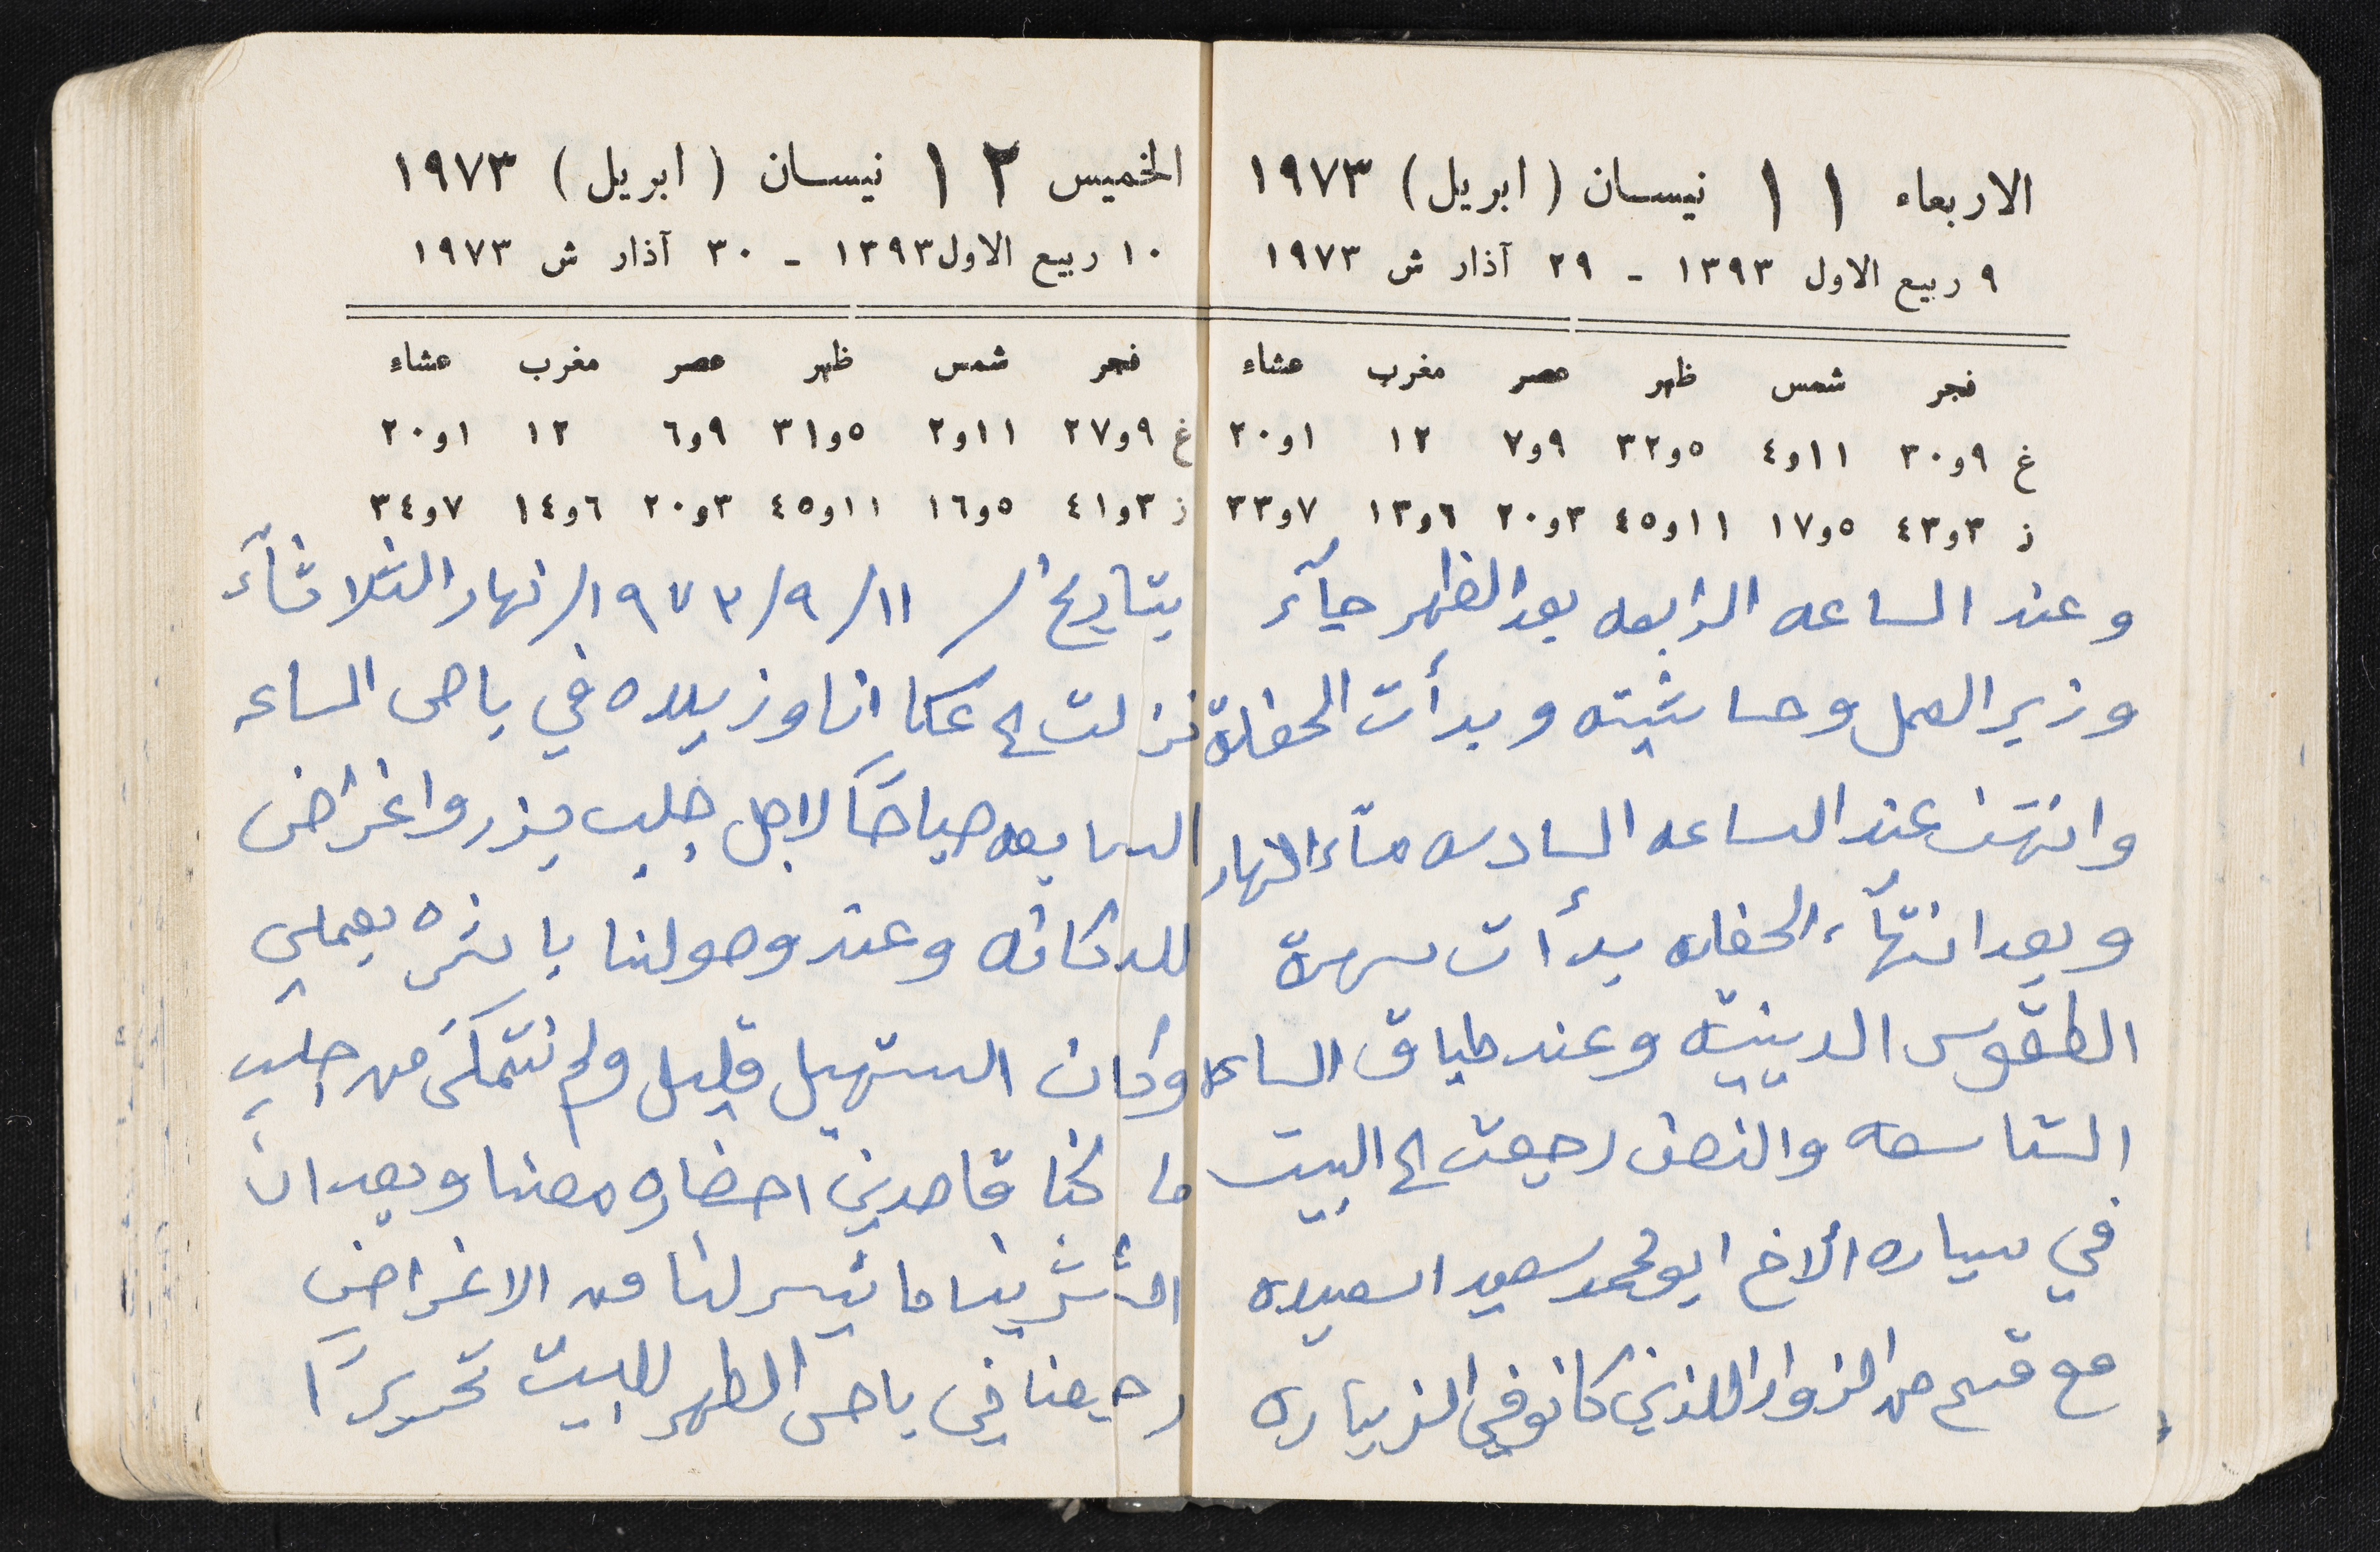 الاربعاء ١١ نيسان (ابريل) ١٩٧٣
٩ ربيع الاول ١٣٩٣ - ٢٩ آذار ش ١٩٧٣
فجر شمس ظهر عصر مغرب عشاء
غ ٩و٣٠ ١١و٤ ٥و٣٢ ٩و٧ ١٢ ١و٢٠
ز ٣و٤٣ ٥و١٧ ١١و٤٥ ٣و٢٠ ٦و١٣ ٧و٣٣
وعند الساعه الرابعه بعد الظهر جآء
وزير العمل وحاشيته وبدأت الحفلة
وانتهت عند الساعه السادسه مسآء النهار
وبعد انتهآء الحفله بدأت سهرة
الطقوس الدينيه وعند طباق الساعه
التاسعه والنصف رجعت الى البيت
في سياره ألاخ ابو محمد سعيد اسعيده
مع قسم من الزوار اللذين كانو في الزياره
الخميس ١٢ نيسان (ابريل) ١٩٧٣
١٠ ربيع الاول ١٣٩٣ - ٣٠ آذار ش ١٩٧٣
فجر شمس ظهر عصر مغرب عشاء
غ ٩و٢٧ ١١و٢ ٥و٣١ ٩و٦ ١٢ ١و٢٠
ز ٣و٤١ ٥و١٦ ١١و٤٥ ٣و٢٠ ٦و١٤ ٧و٣٤
بتاريخ / ١١/٩/١٩٧٣/ نهار الثلاثآء
نزلت الى عكا انا وزبيده في باص الساعه
السابعه صباحًا لاجل جلب بزر واغراض
للدكانه وعند وصولنا باشره بعملي
وكان التسهيل قليل ولم نتمكن من جلب
ما كنا قاصدين احضاره معنا وبعد ان
اشترينا ما تيسر لنا من الاغراض
رجعنا في باص الظهر للبيت تحريرًا